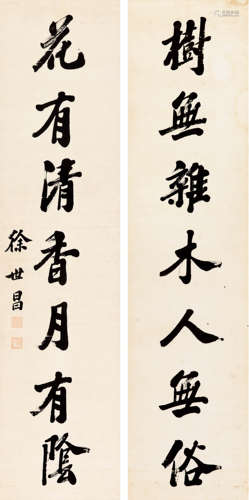 樹無雜木人無俗
花有清香月有陰
徐世昌